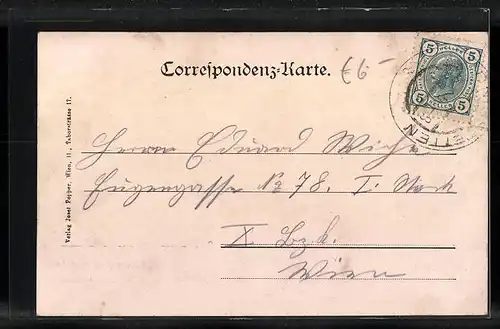 Correspondenz-Karte.
€6-
5 HELLER 5
5 HELLER 5
Herrn Eduard
Eugengasse No 78. I. Stock
X Bzk.
Wien
Verlag Josef Popper, Wien, II., Taborstrasse 17.